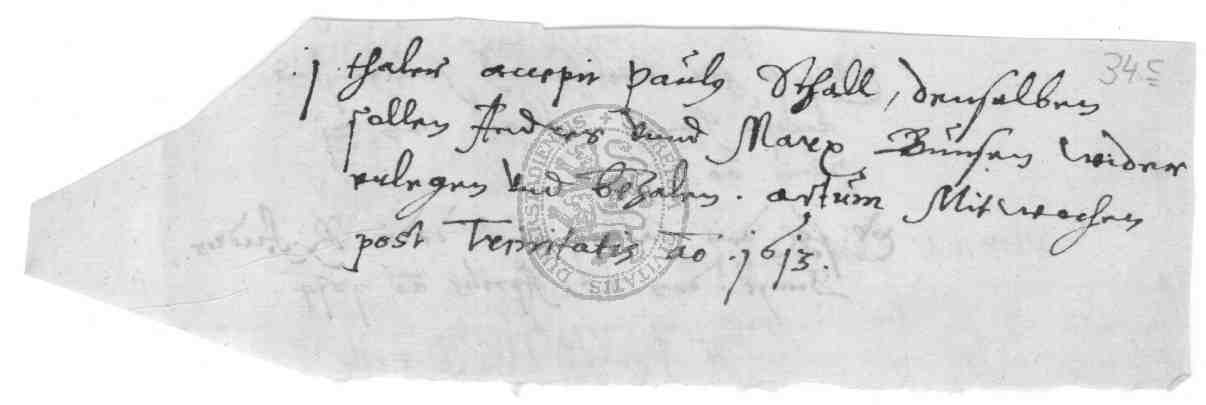 j thaler accepit Pauly Schall, denselben
sollen Andres vnnd Marx Bünsen wider
erlegen vnd bezalen. actum Mitwochen
post Trinitatis ao .1613.
34